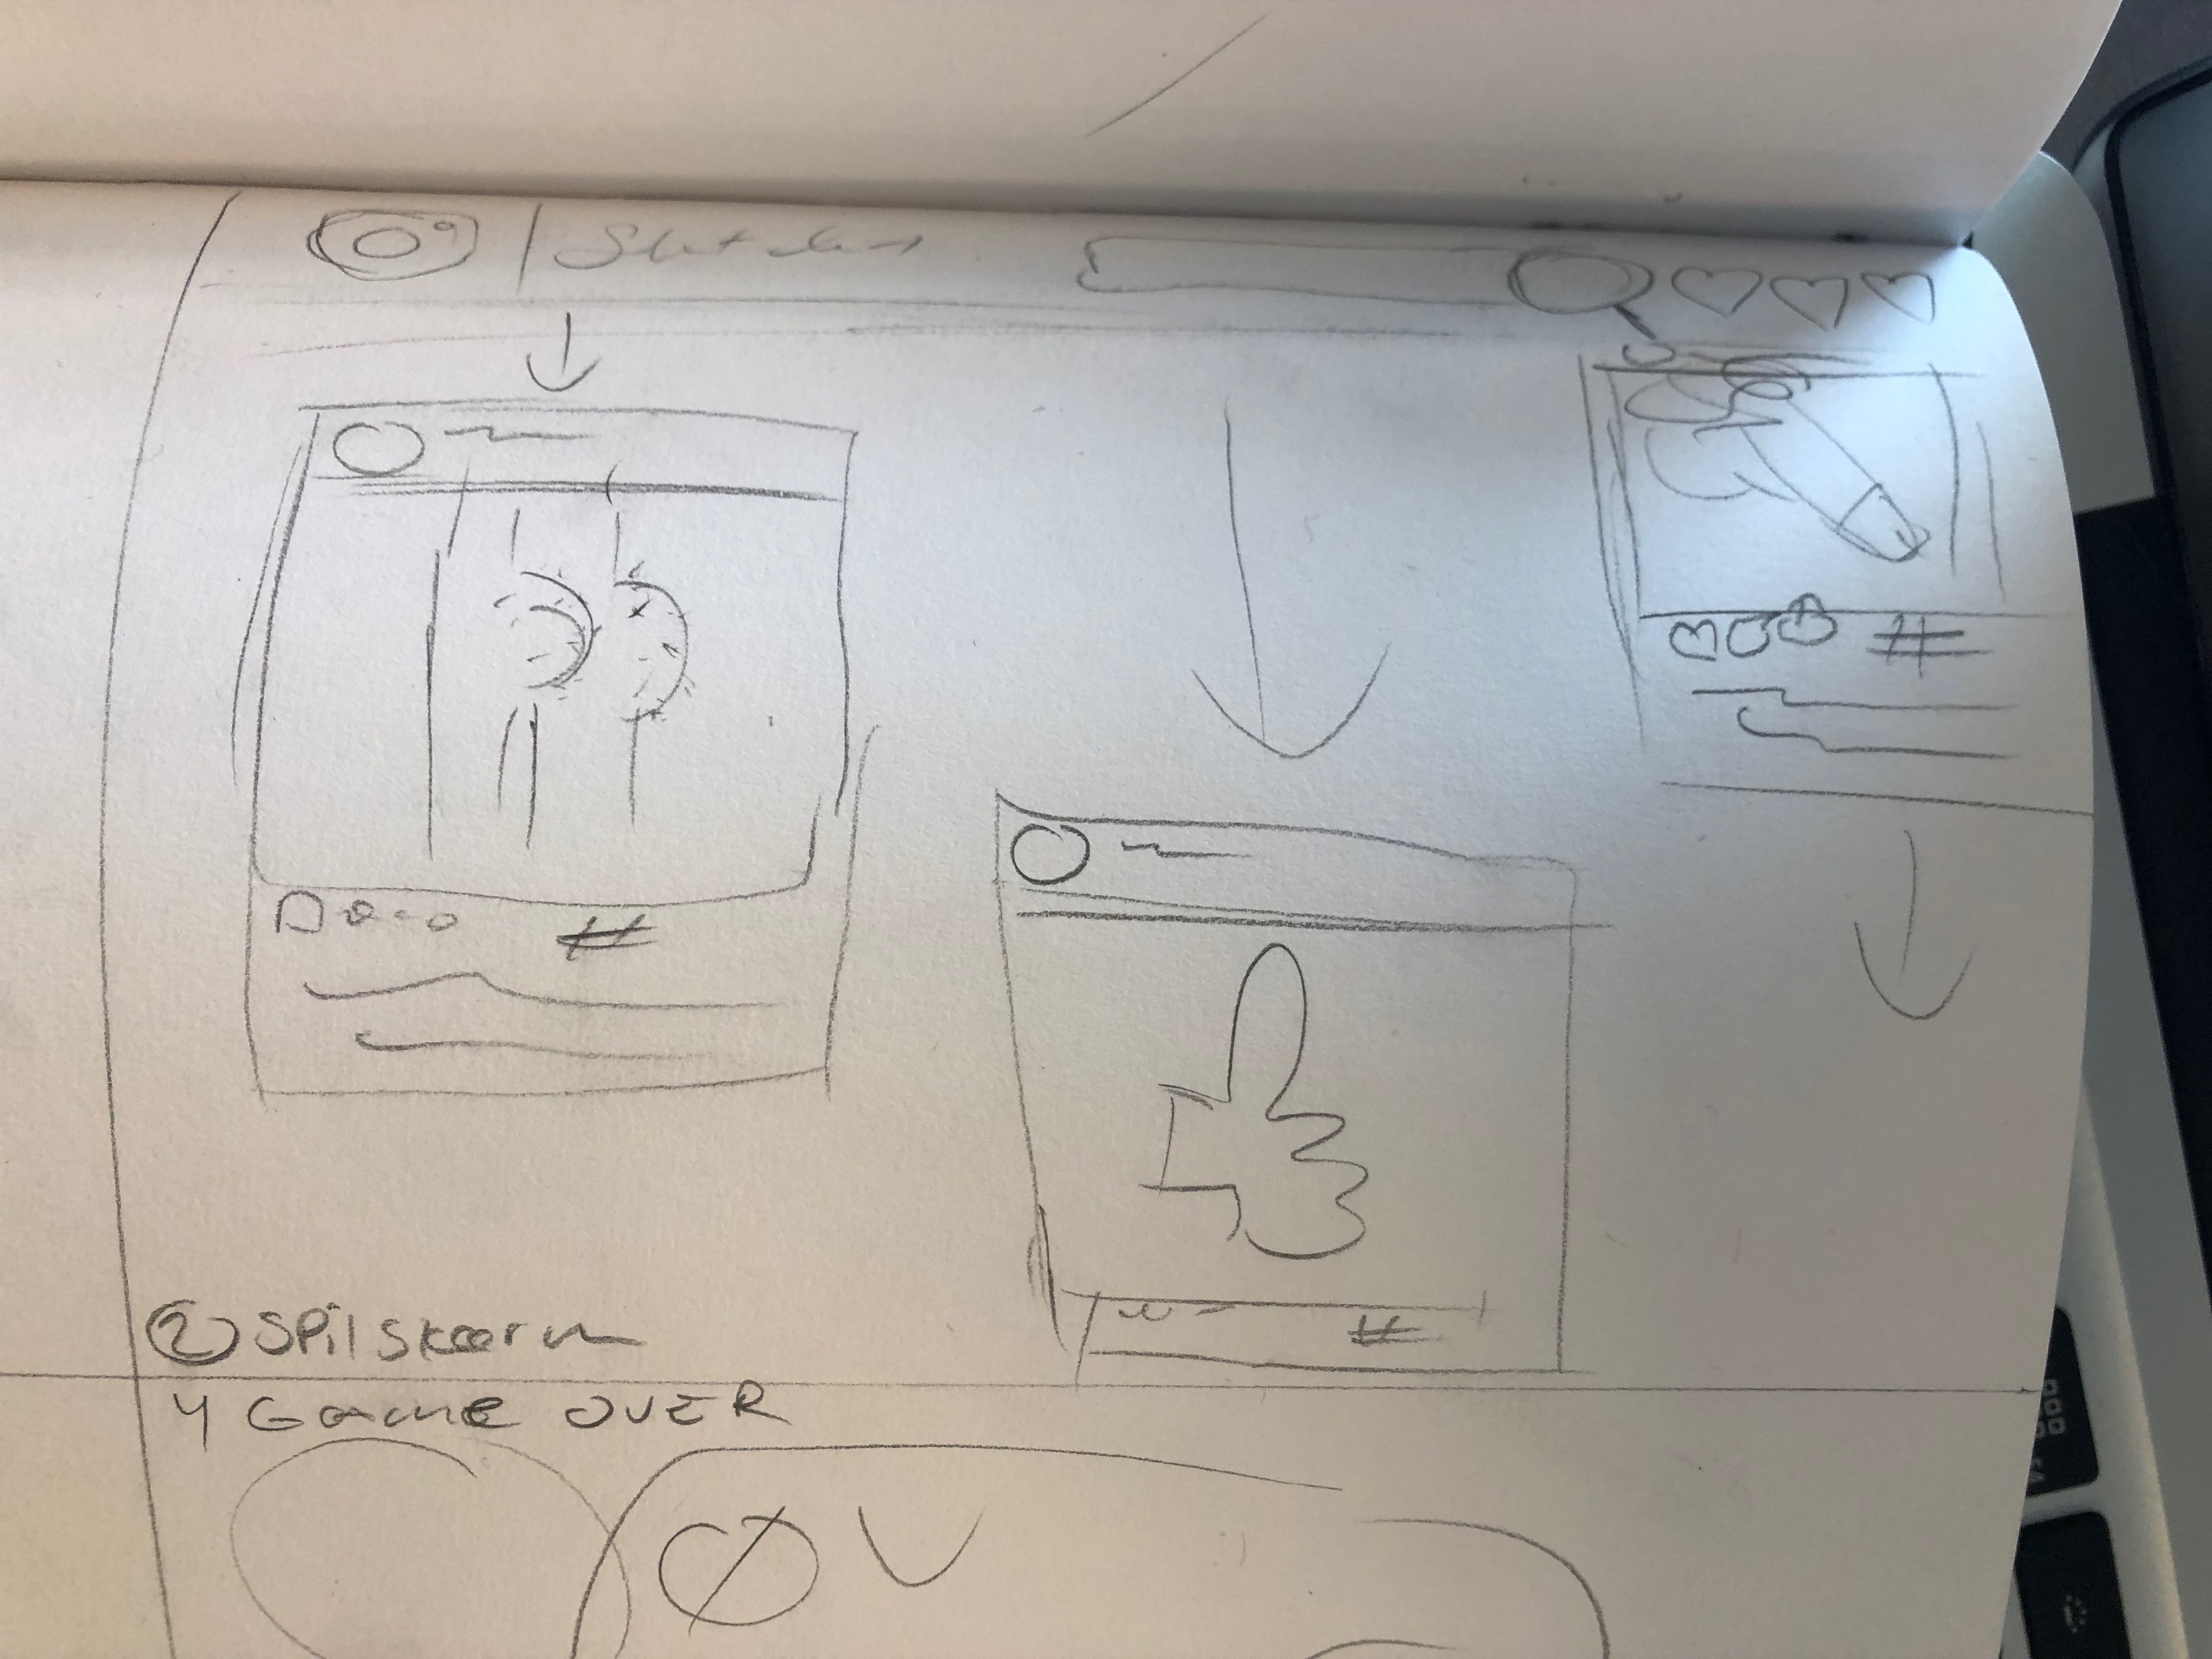 #
#
#
② SPil skærm
4 Game OVER
ØV